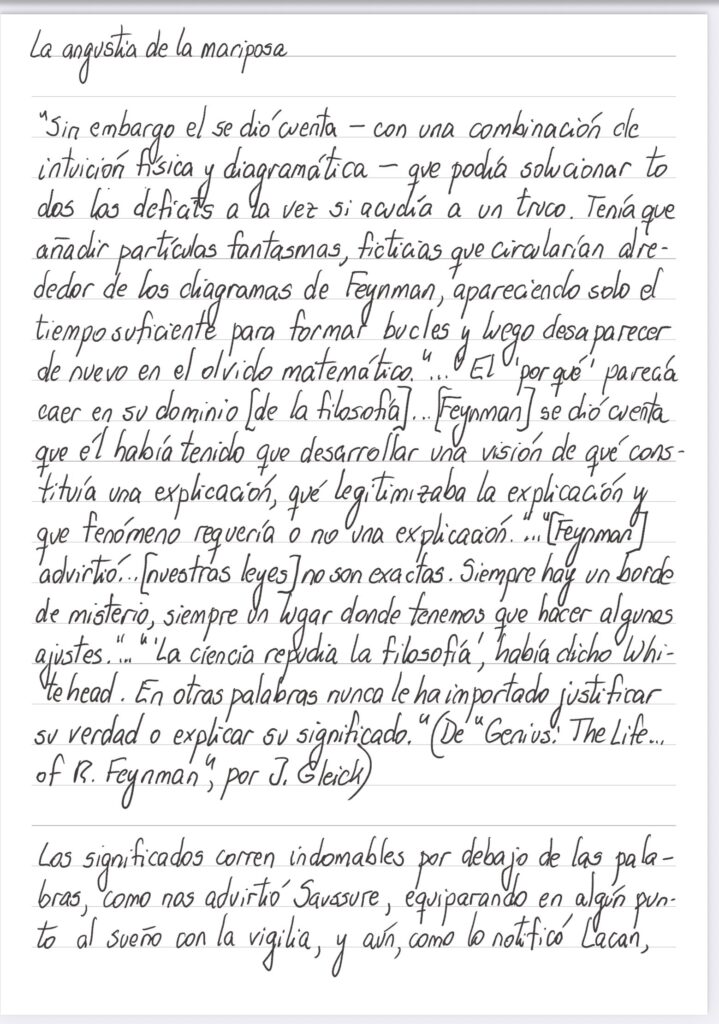 La angustia de la mariposa
"Sin embargo el se dió cuenta – con una combinación de
intuición física y diagramática – que podía solucionar to
dos los deficits a la vez si acudía a un truco. Tenía que
añadir partículas fantasmas, ficticias que circularían alre-
dedor de los diagramas de Feynman, apareciendo solo el
tiempo suficiente para formar bucles y luego desaparecer
de nuevo en el olvido matemático."..." El 'por qué' parecía
caer en su dominio [de la filosofía]...[Feynman] se dió cuenta
que él había tenido que desarrollar una visión de qué cons-
tituía una explicación, qué legitimizaba la explicación y
que fenómeno requería o no una explicación."..."[Feynman]
advirtió...[nuestras leyes] no son exactas. Siempre hay un borde
de misterio, siempre un lugar donde tenemos que hacer algunos
ajustes."..."'La ciencia repudia la filosofía', había dicho Whi-
tehead. En otras palabras nunca le ha importado justificar
su verdad o explicar su significado." (De "Genius: The Life...
of R. Feynman", por J. Gleick)
Los significados corren indomables por debajo de las pala-
bras, como nos advirtió Saussure, equiparando en algún pun-
to al sueño con la vigilia, y aún, como lo notificó Lacan,